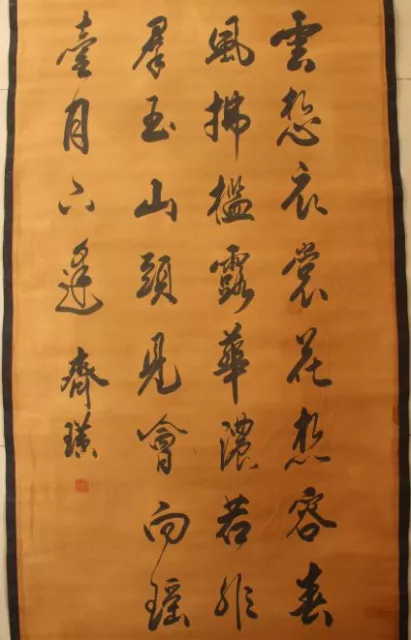 雲想衣裳花想容春
風拂檻露華濃若非
羣玉山頭見會向瑤
臺月下逢 齊璜